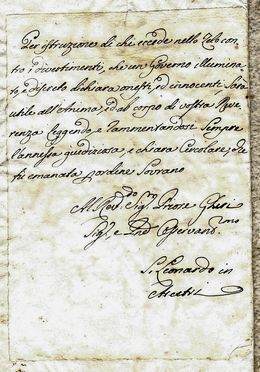 Per istruzione di chi eccede nello Zelo con
tro i divertimenti, che un Governo illumina
to, e discreto dichiara onesti, ed innocenti Sarà
utile all'Anima, ed al corpo di vostra Reve
renza leggendo, e rammentandosi Sempre
l'annessa giudiziosa, e chiara Circolare, Sta
ta emanata d'ordine Sovrano
Al Rev.do Sig.r Priore Ghisi
Sig.r e P.ne Osservand.mo
S. Leonardo in